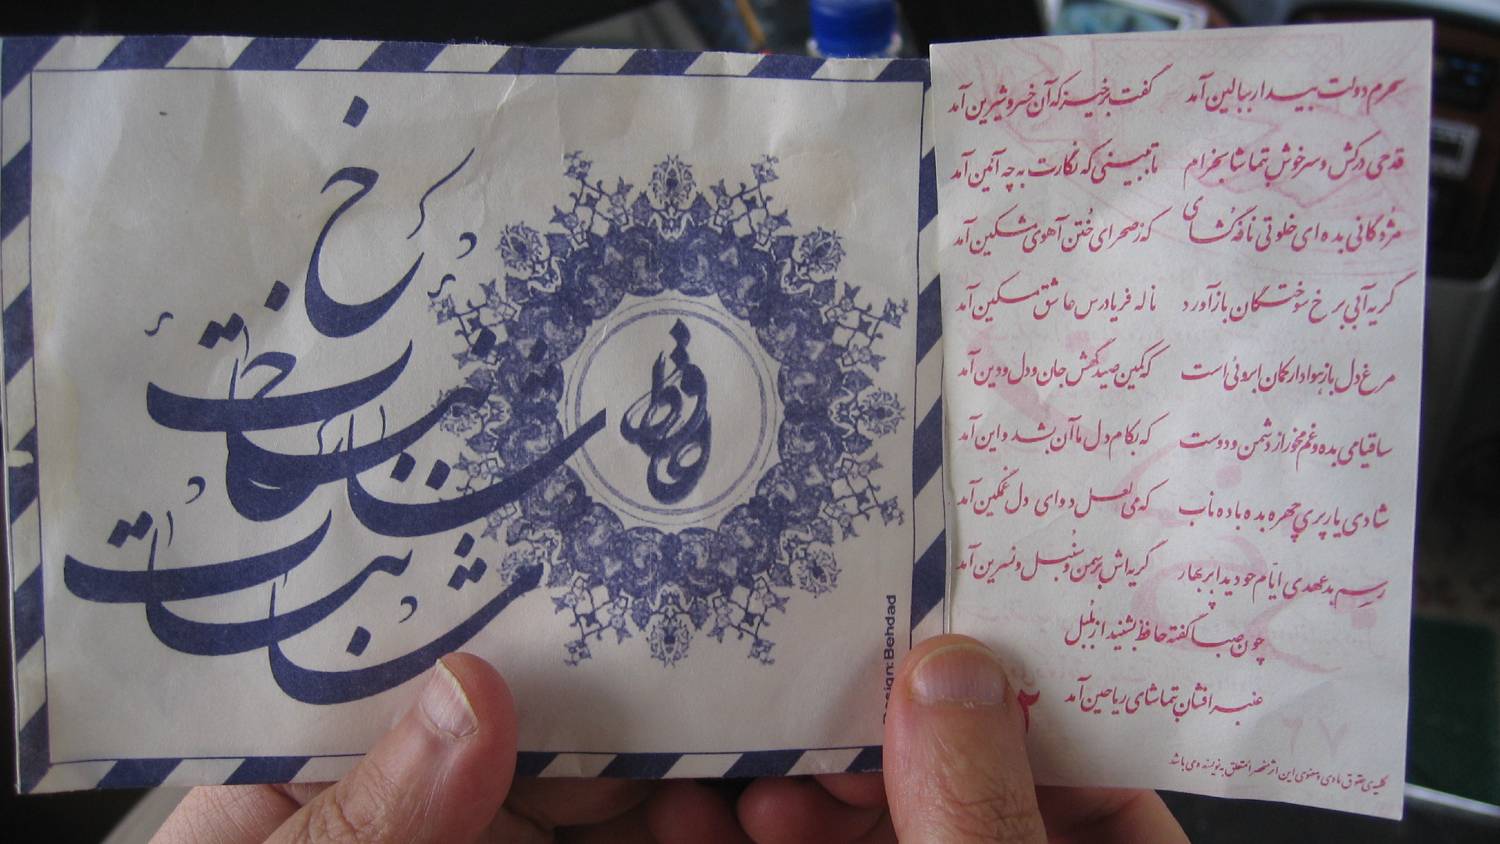 شاخ نبات
حافظ
Design:Behdad
سحرم دولت بیدار ببالین آمد گفت برخیز که آن خسرو شیرین آمد
قدحی درکش و سرخوش بتماشا بخرام تا ببینی که نگارت به چه آئین آمد
مژدگانی بده ای خلوتی نافه گشای که ز صحرای خُتن آهوی مشکین آمد
گریه آبی بر خ سوختگان بازآورد ناله فریادرس عاشق مسکین آمد
مرغ دل باز هوادار کمان ابروئی است که کمین صید گهش جان و دل و دین آمد
ساقیا می بده و غم مخور از دشمن و دوست که بکام دل ما آن بشد و این آمد
شادی یار پری چهره بده باده ناب که می لعل دوای دل غمگین آمد
رسم بدعهدی ایّام چو دید ابر بهار گریه اش بر سمن و سُنبل و نسرین آمد
چون صبا گفته حافظ بشنید از بُلبل
عنبر افشان بتماشای ریاحین آمد
کلیه ی حقوق مادی و معنوی این اثر منحصراً متعلق به نویسنده می باشد